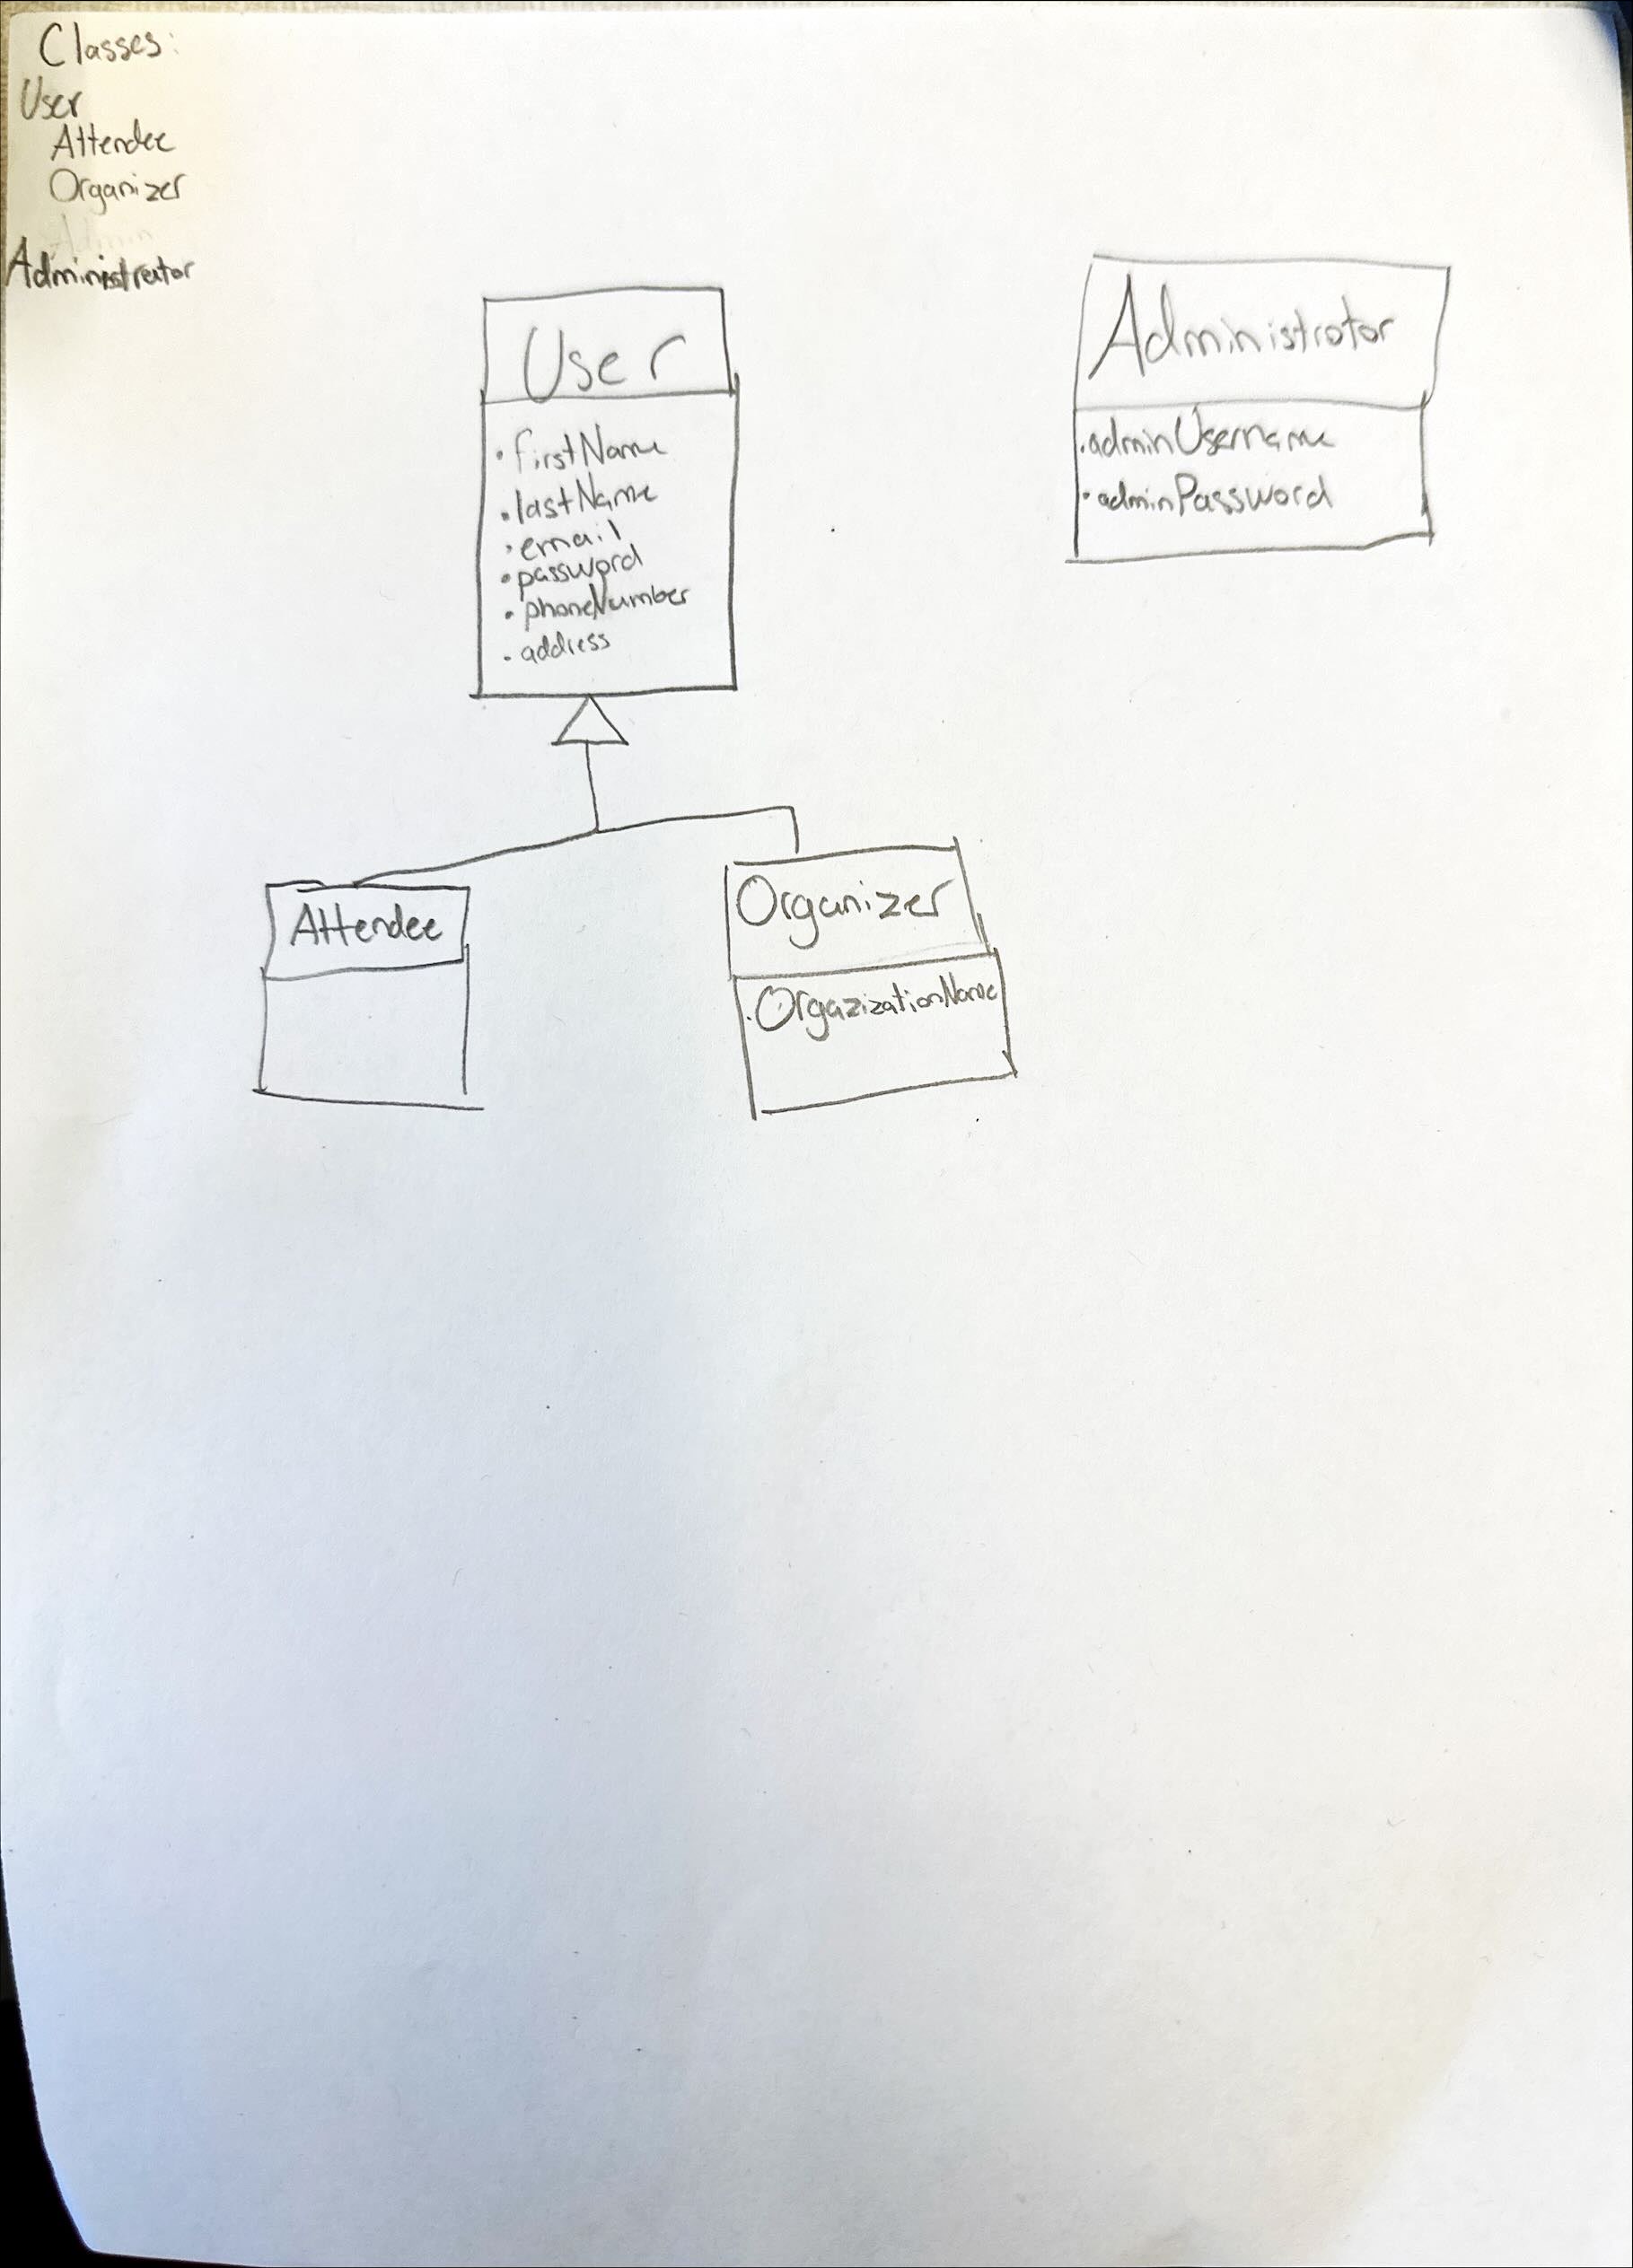 Classes:
User
Attendee
Organizer
Admin
Administrator
User
• firstName
• lastName
• email
• password
• phoneNumber
• address
Administrator
• adminUsername
• adminPassword
Attendee
Organizer
• OrgazizationName